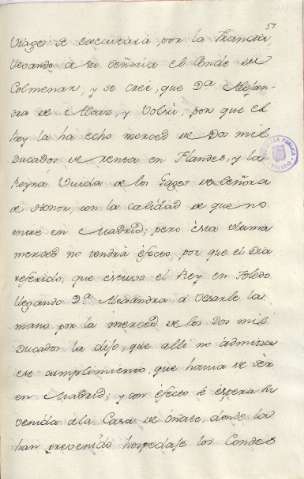 57
Viage se executaria, por la Francia,
llevando a su señoria el Conde de
Colmenar, y se cree, que Dª Alejan-
dra de y Volvió, por que el
Rey la ha echo merced de Dos mil
Ducados de renta en Flandes, y la
Reyna Viuda de los Gages de Señora
de Honor, con la calidad de que no
entre en Madrid; pero esta ultima
merced no tendrá efecto, por que el Dia
referido, que estuvo el Rey en Toledo
llegando Dª Alexandra á vesarle la
mano por la merced de los dos mil
Ducados la dijo, que alli no admitia
ese cumplimiento, que havia de ser
en Madrid; y con efecto se espera su
venida á la Casa de Oñate, donde la
han prevenido hospedaje los Condes